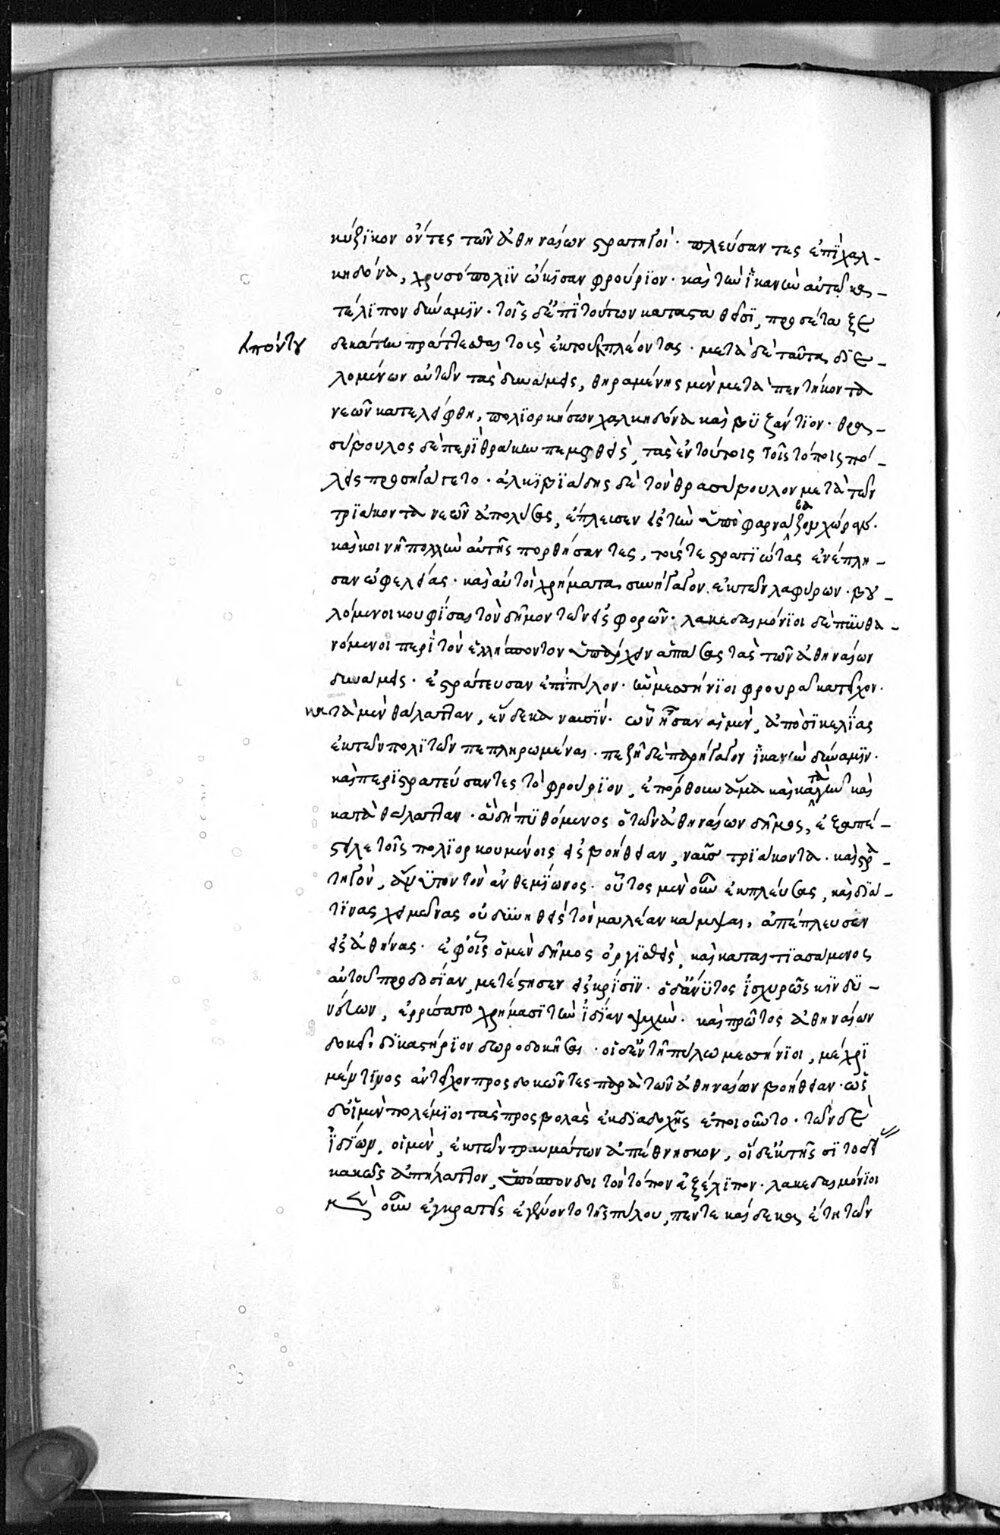 κύζϊκον ὄντες τῶν ἀθηναίων στρατηγοὶ· πλεύσαντες ἐπὶ χαλ-
κηδόνα, χρυσόπολϊν ὤκϊσαν φρούρϊον· καὶ τὴν ἱκανὴν αὐτῶ κα-
τέλϊπον δύναμϊν· τοῖς δ' ἐπὶ τούτων κατασταθεῖσϊ, προσέταξε
δεκάτην πράττεσθαι τοὺς ἐκπόντου πλέοντας· μετὰ δὲ ταῦτα διε-
ἐκ πόντου
λομένων αὐτῶν τὰς δυνάμεις, θηραμένης μὲν μετὰ πεντήκοντα
νεῶν κατελείφθη, πολϊορκήσων χαλκηδόνα καὶ βυζάντϊον· θρα-
σύβουλος δὲ περὶ θράκην πεμφθεὶς, τὰς ἐν τούτοις τοῖς τόποις πό-
λεις προσηγάγετο· ἀλκϊβϊάδης δὲ τὸν θρασύβουλον μετὰ τῶν
τρϊάκοντα νεῶν ἀπολύσας, ἔπλευσεν εἰς τὴν ὑπὸ φαρναβάζον χώραν·
καὶ κοινῆ πολλὴν αὐτῆς πορθήσαντες, τούς τε στρατϊώτας ἐνέπλη-
σαν ὠφελείας· καὶ αὐτοὶ χρήματα συνήγαγον ἐκ τῶν λαφύρων· βου-
λόμενοι κουφίσαι τὸν δῆμον τῶν εἰσφορῶν· λακεδαιμόνϊοι δὲ πυνθα-
νόμενοι περὶ τὸν ἑλλήσποντον ὑπάρχειν ἁπάσας τὰς τῶν ἀθηναίων
δυνάμεις· ἐστράτευσαν ἐπὶ πύλον· ἣν μεσσήνϊοι φρουρᾶ κατεῖχον·
κατὰ μὲν θάλατταν, ἕνδεκα ναυσϊν· ὧν ἦσαν αἱ μὲν, ἀπὸ σϊκελίας
ἐκ τῶν πολϊτῶν πεπληρωμέναι· πεζῆ δὲ παρήγαγον ἱκανὴν δύναμϊν·
καὶ περϊστρατεύσαντες τὸ φρούρϊον, ἐπόρθουν ἅμα καὶ κατὰ γῆν καὶ
κατὰ θάλατταν· ἃ δὴ πυθόμενος ὁ τῶν ἀθηναίων δῆμος, ἐξαπέ-
στειλε τοῖς πολϊορκουμένοις εἰς βοήθειαν, ναῦς τρϊάκοντα· καὶ στρα-
τηγὸν, ἄνυτον τὸν ἀνθεμίωνος· οὗτος μὲν οὖν ἐκπλεύσας, καὶ διά
τϊνας χειμῶνας οὐ δυνηθεὶς τὸν μαλέαν κάμψαι, ἀπέπλευσεν
εἰς ἀθήνας· ἐφ' οἷς ὁ μὲν δῆμος ὀργϊσθεὶς, καὶ καταιτϊασάμενος
αὐτοῦ προδοσίαν, μετέστησεν εἰς κρίσϊν· ὁ δ' ἄνυτος ἰσχυρῶς κϊνδυ-
νεύων, ἐρρύσατο χρήμασϊ τὴν ἰδίαν ψυχὴν· καὶ πρῶτος ἀθηναίων
δοκεῖ δϊκαστήρϊον δωροδοκῆσαι· οἱ δ' ἐν τῆ πύλω μεσσήνϊοι, μέχρϊ
μέν τϊνος ἀντεῖχον προσδοκῶντες παρὰ τῶν ἀθηναίων βοήθειαν· ὡς
δ' οἱ μὲν πολέμϊοι τὰς προσβολὰς ἐκ διαδοχῆς ἐποιοῦντο· τῶν δὲ
ἰδίων, οἱ μὲν, ἐκ τῶν τραυμάτων ἀπέθνησκον, οἱ δ' ἐκ τῆς σϊτοδεί
κακῶς ἀπήλαττον, ὑπόσπονδοι τὸν τόπον ἐξέλϊπον· λακεδαιμόνϊοι
μὲν οὖν ἐγκρατεῖς ἐγένοντο τῆς πύλου, πεντεκαίδεκα ἔτη τῶν